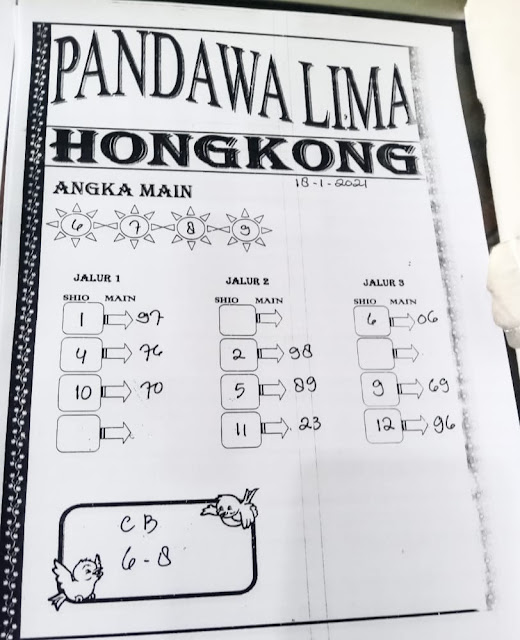 PANDAWA LIMA
HONGKONG
18-1-2021
ANGKA MAIN
6 7 8 9
JALUR 1 JALUR 2 JALUR 3
SHIO MAIN SHIO MAIN SHIO MAIN
1 97 6 06
4 76 2 98
10 70 5 89 9 69
11 23 12 96
CB
6-8